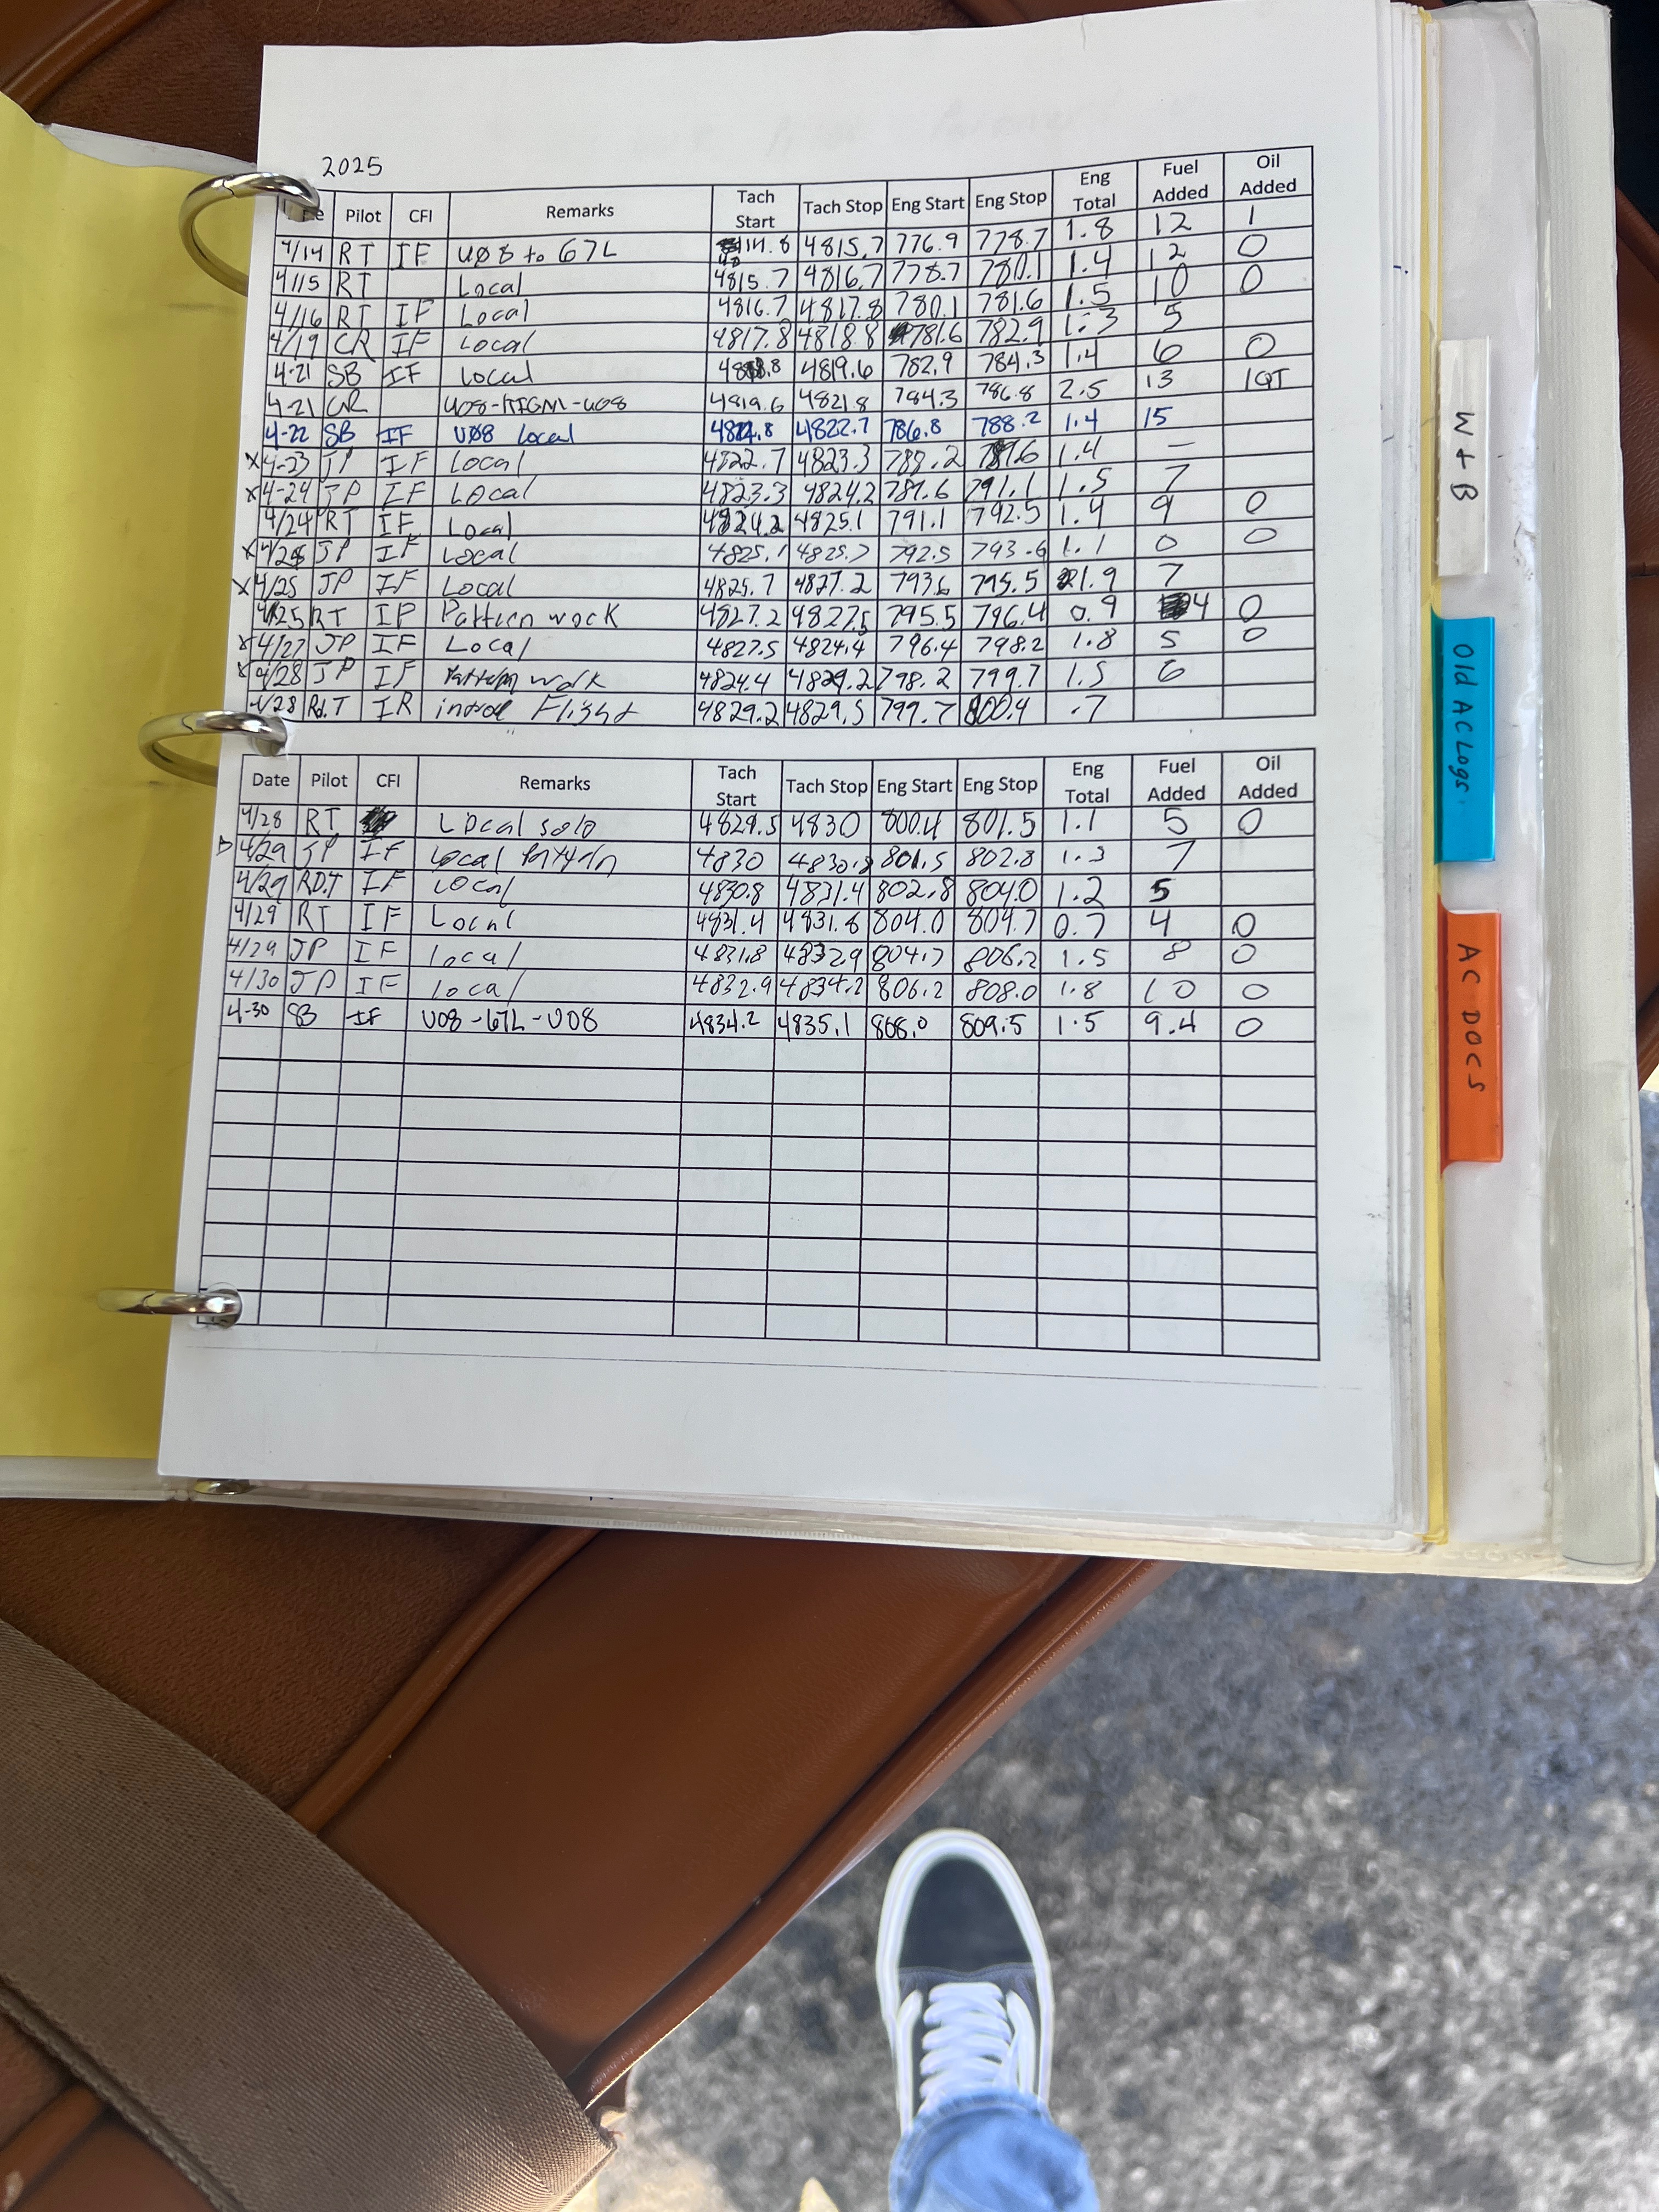 2025
Pilot CFI Remarks Tach Start Tach Stop Eng Start Eng Stop Eng Total Fuel Added Oil Added
4/14 RT IF UØ8 to 67L 14.8 4815.7 776.9 778.7 1.8 12 1
4/15 RT Local 4815.7 4816.7 778.7 780.1 1.4 12 0
4/16 RT IF Local 4816.7 4817.8 780.1 781.6 1.5 10 0
4/19 CR IF Local 4817.8 4818.8 781.6 782.9 1.3 5
4-21 SB IF Local 4818.8 4819.6 782.9 784.3 1.4 6 0
4-21 CR U08-KIGM-U08 4819.6 4821.8 784.3 786.8 2.5 13 1QT
4-22 SB IF UØ8 local 4821.8 4822.7 786.8 788.2 1.4 15
x 4-23 JP IF Local 4822.7 4823.3 788.2 789.6 1.4 —
x 4-24 JP IF Local 4823.3 4824.2 789.6 791.1 1.5 7
4/24 RT IF Local 4824.2 4825.1 791.1 792.5 1.4 9 0
x 4/25 JP IF Local 4825.1 4825.7 792.5 793.6 1.1 0 0
x 4/25 JP IF Local 4825.7 4827.2 793.6 795.5 1.9 7
4/25 RT IF Pattern work 4827.2 4827.5 795.5 796.4 0.9 4 0
x 4/27 JP IF Local 4827.5 4824.4 796.4 798.2 1.8 5 0
x 4/28 JP IF Pattern work 4824.4 4829.2 798.2 799.7 1.5 6
4/28 Rd.T IR Flight 4829.2 4829.5 799.7 800.4 .7
Date Pilot CFI Remarks Tach Start Tach Stop Eng Start Eng Stop Eng Total Fuel Added Oil Added
4/28 RT Local solo 4829.5 4830 800.4 801.5 1.1 5 0
4/29 JP IF Local Pattern 4830 4830.8 801.5 802.8 1.3 7
4/29 RD.T IF Local 4830.8 4831.4 802.8 804.0 1.2 5
4/29 RT IF Local 4831.4 4831.8 804.0 804.7 0.7 4 0
4/29 JP IF local 4831.8 4832.9 804.7 806.2 1.5 8 0
4/30 JP IF local 4832.9 4834.2 806.2 808.0 1.8 10 0
4-30 SB IF U08-67L-U08 4834.2 4835.1 808.0 809.5 1.5 9.4 0
W + B
Old AC Logs.
AC DOCS